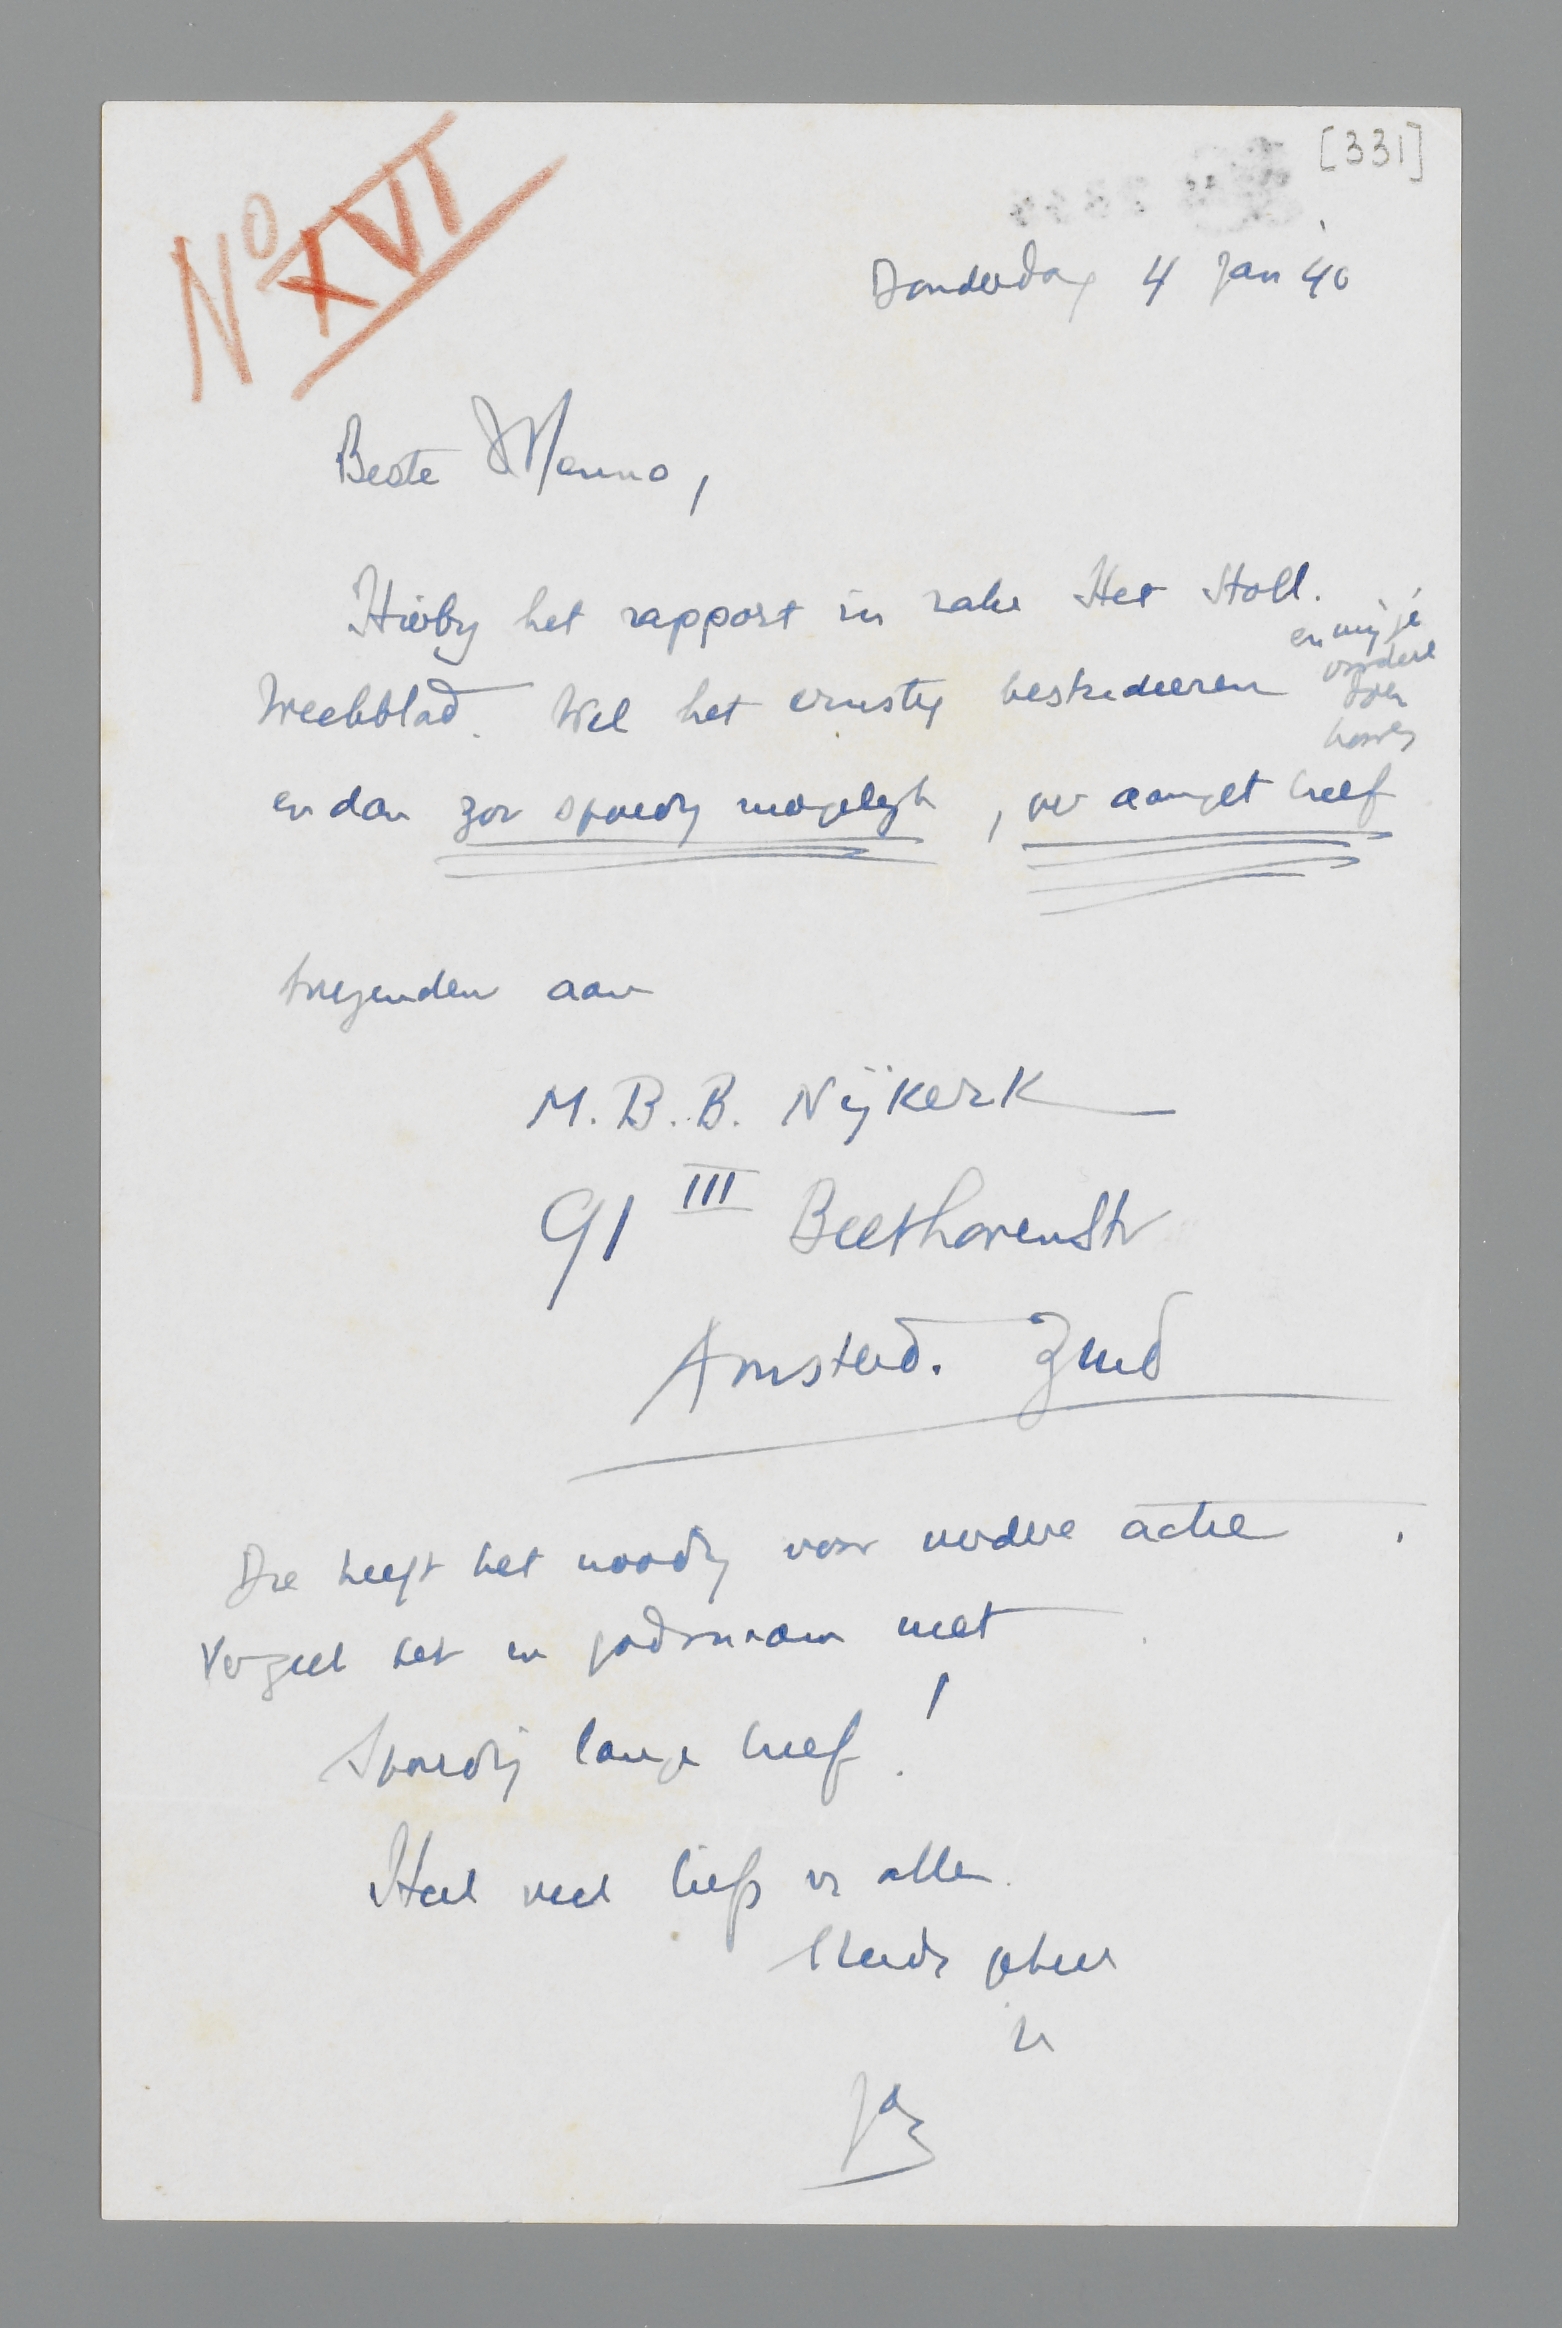 [331]
No XVI
Donderdag 4 Jan '40
Beste Menno,
Hierby het rapport in zake Het Holl.
Weekblad. Wil het ernstig bestudeeren en mij je
oordeel
doen
hooren
en dan zoo spoedig mogelyk, per aanget brief
toezenden aan
M.B.B. Nijkerk
91 III Beethovenstr
Amsterd. Zuid
Die heeft het noodig voor verdere actie.
Vergeet het in godsnaam niet
Spoedig lange brief!
Heel veel liefs vr allen.
Steeds geheel
je